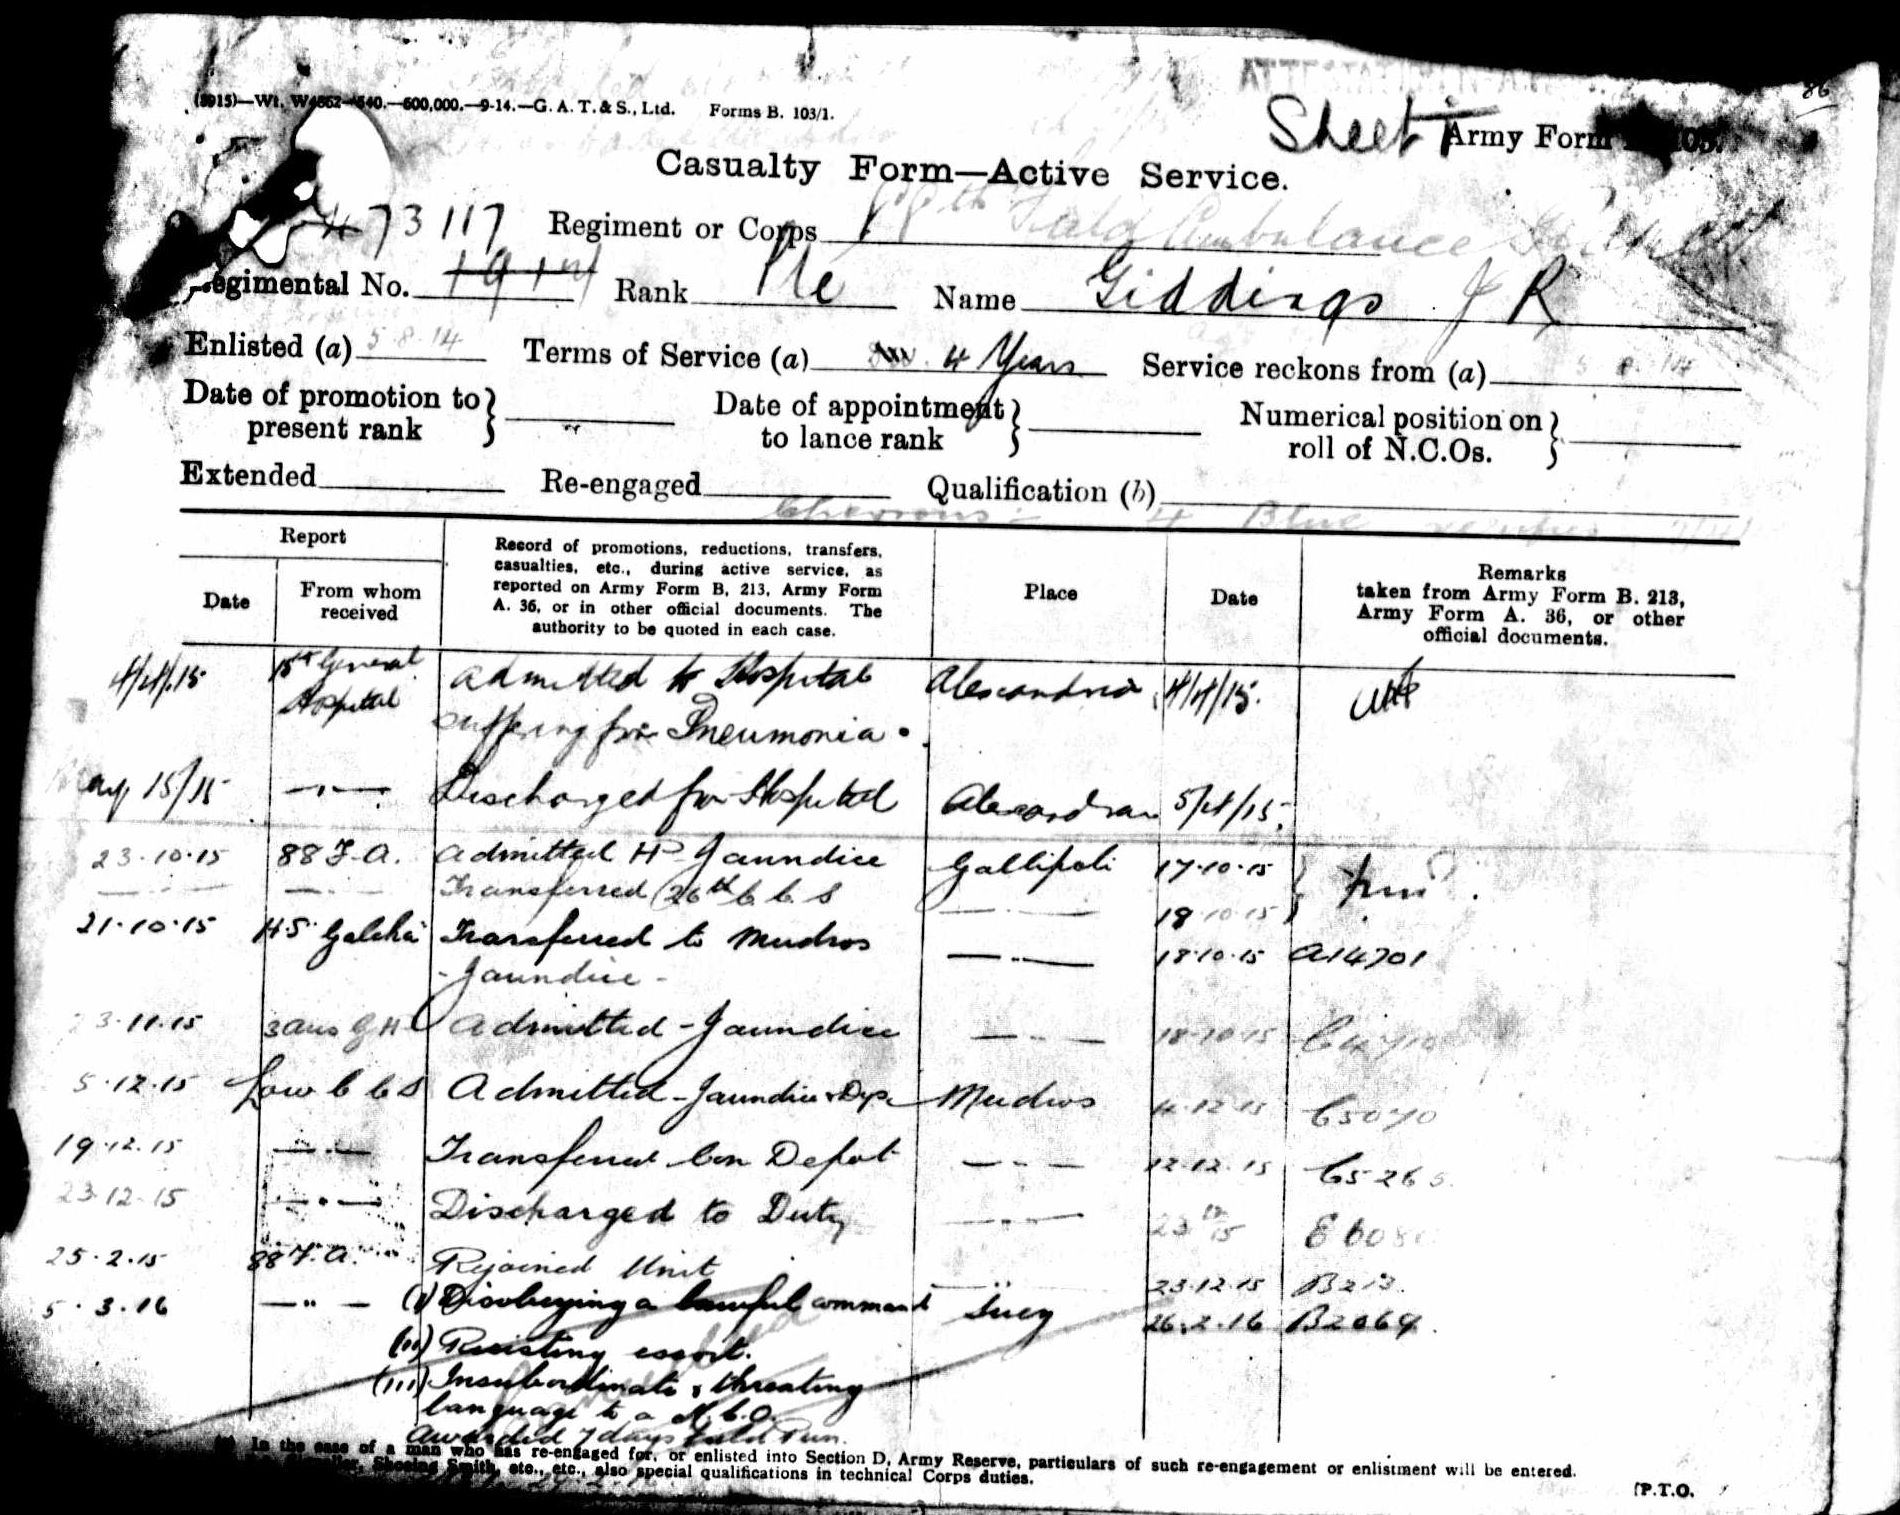 (5915)—Wt. W4862—540.—600,000.—9-14.—G. A. T. & S., Ltd. Forms B. 103/1.
86
Sheet 1 Army Form 103.
Casualty Form—Active Service.
473117 Regiment or Corps Field Ambulance
Regimental No. Rank Pte Name Giddings J R
Enlisted (a) 5.8.14 Terms of Service (a) 4 Years Service reckons from (a) 5 8 14
Date of promotion to present rank } Date of appointment to lance rank } Numerical position on roll of N.C.Os. }
Extended Re-engaged Qualification (b)
Chevrons :- 4 Blue
Report
Date From whom received Record of promotions, reductions, transfers, casualties, etc., during active service, as reported on Army Form B, 213, Army Form A. 36, or in other official documents. The authority to be quoted in each case. Place Date Remarks taken from Army Form B. 213, Army Form A. 36, or other official documents.
4/4/15 15th General Hospital Admitted to Hospital Alexandria 4/4/15.
suffering from Pneumonia.
May 15/15 —"— Discharged from Hospital Alexandria 5/4/15.
23.10.15 88 F.A. Admitted Hp Jaundice Gallipoli 17.10.15
—"— —"— Transferred 26th C C S —"— 18 10 15
21.10.15 H.S. Transferred to Mudros —"— 18.10.15 A14701
- Jaundice -
23.11.15 3 Aus G H Admitted - Jaundice —"— 18.10.15
5.12.15 Low C C S Admitted - Jaundice Mudros 4.12.15 C5070
19.12.15 —"— Transferred Con Depot —"— 12.12.15 C5265
23.12.15 —"— Discharged to Duty —"— 23 12/15
25.2.15 88 F.A. Rejoined Unit —"— 23.12.15 B213
5.3.16 —"— (i) Disobeying a lawful command Suez 26.2.16 B2069
(ii) Resisting escort.
(iii) Insubordinate & threating
language to a N.C.O.
Awarded 7 days Field Pun.
(a) In the case of a man who has re-engaged for, or enlisted into Section D, Army Reserve, particulars of such re-engagement or enlistment will be entered.
Shoeing Smith, etc., etc., also special qualifications in technical Corps duties.
[P.T.O.